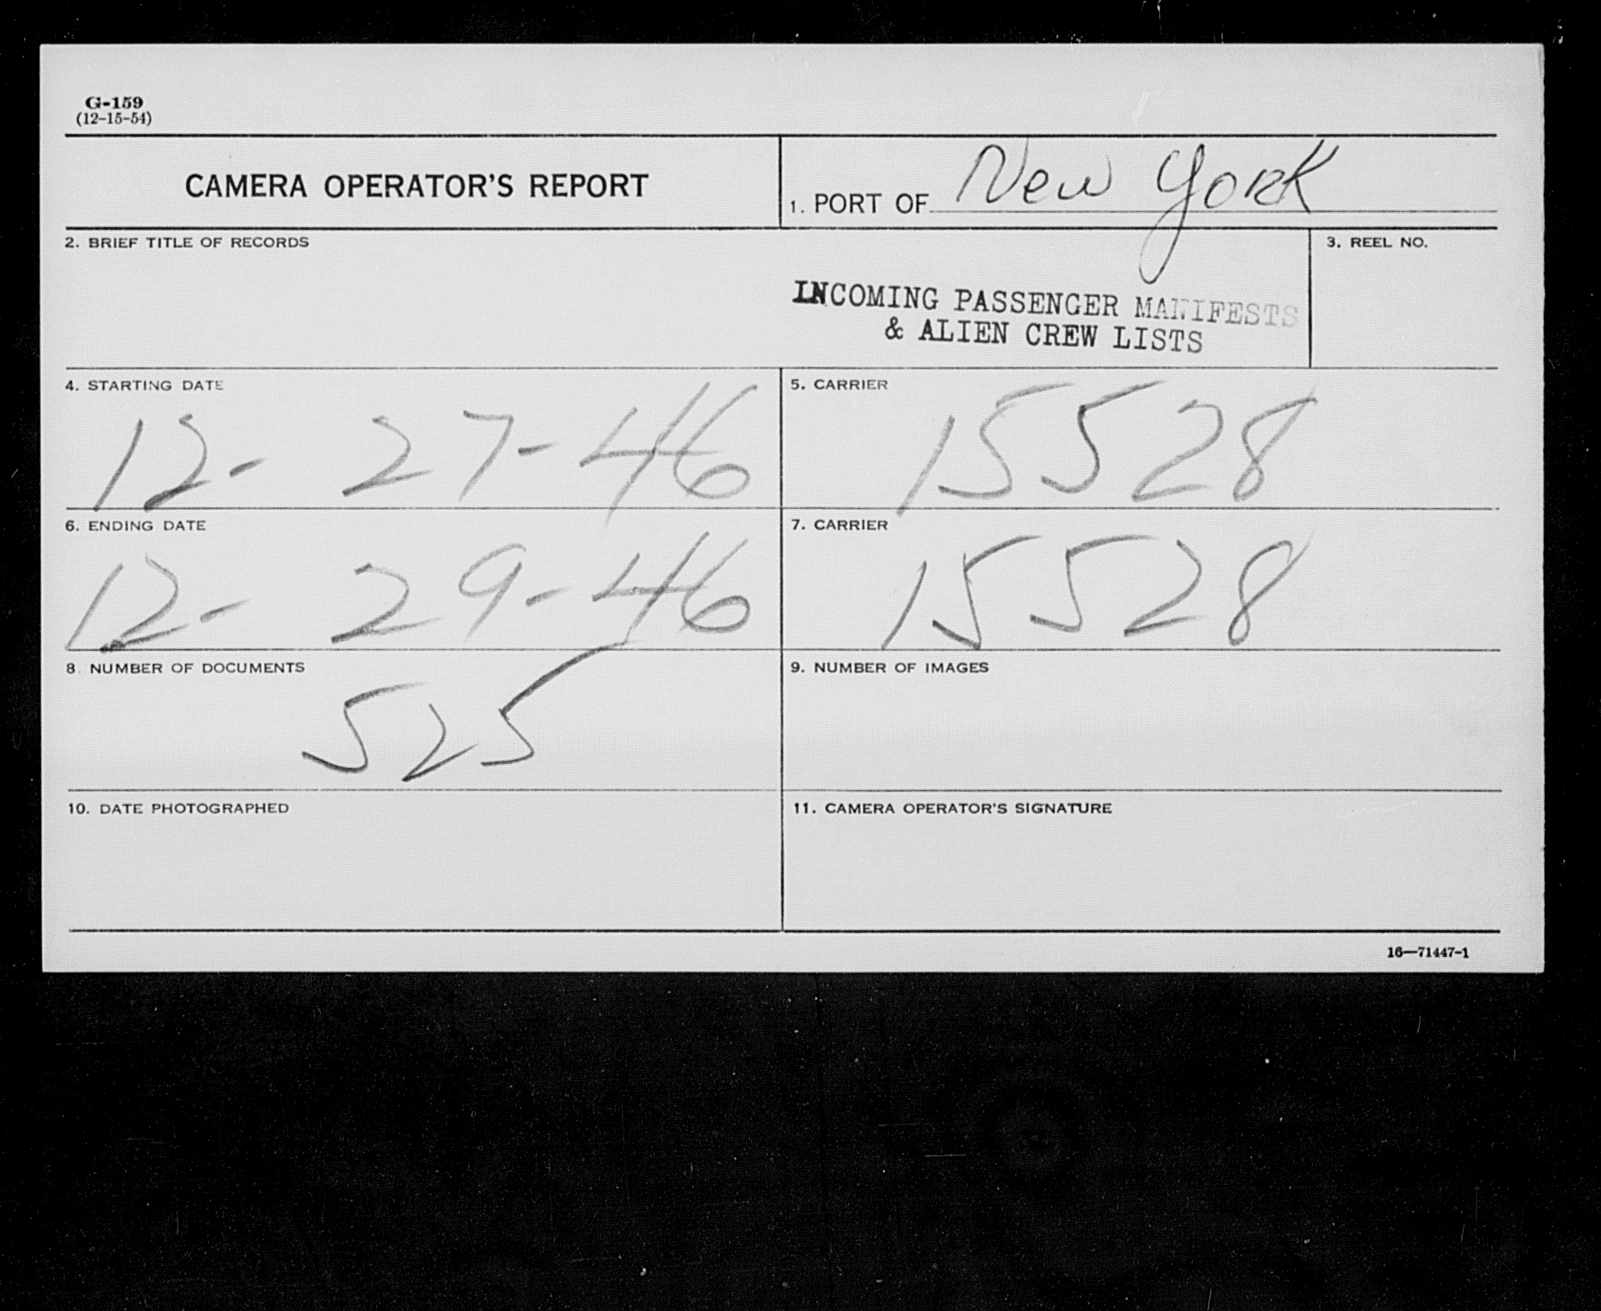 G-159
(12-15-54)
CAMERA OPERATOR'S REPORT
1. PORT OF New York
2. BRIEF TITLE OF RECORDS
INCOMING PASSENGER MANIFESTS
& ALIEN CREW LISTS
3. REEL NO.
4. STARTING DATE
12- 27-46
5. CARRIER
15528
6. ENDING DATE
12- 29-46
7. CARRIER
15528
8. NUMBER OF DOCUMENTS
525
9. NUMBER OF IMAGES
10. DATE PHOTOGRAPHED
11. CAMERA OPERATOR'S SIGNATURE
16—71447-1